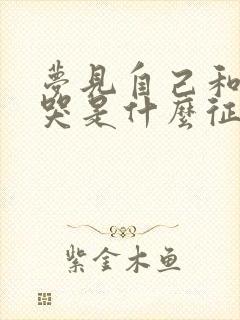 夢見自己和
哭是什麼征
紫金木鱼